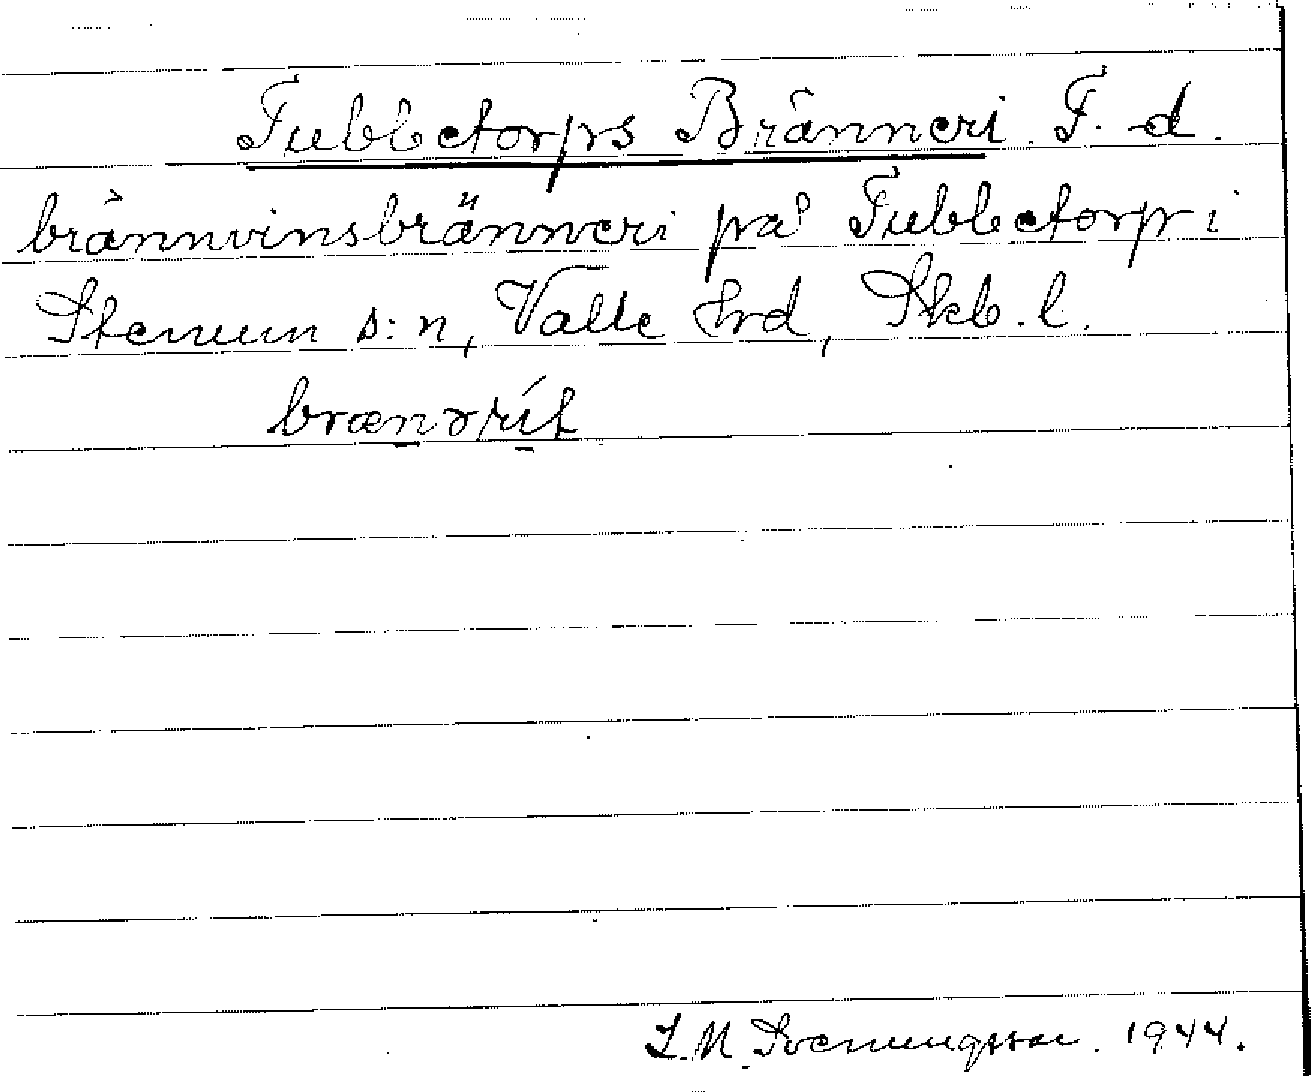 Tubbetorps Bränneri. F. d.
brännvinsbränneri på Tubbetorp i
Stenum s:n, Valle hrd, Skb. l.
I. M. Svenningsson. 1944.